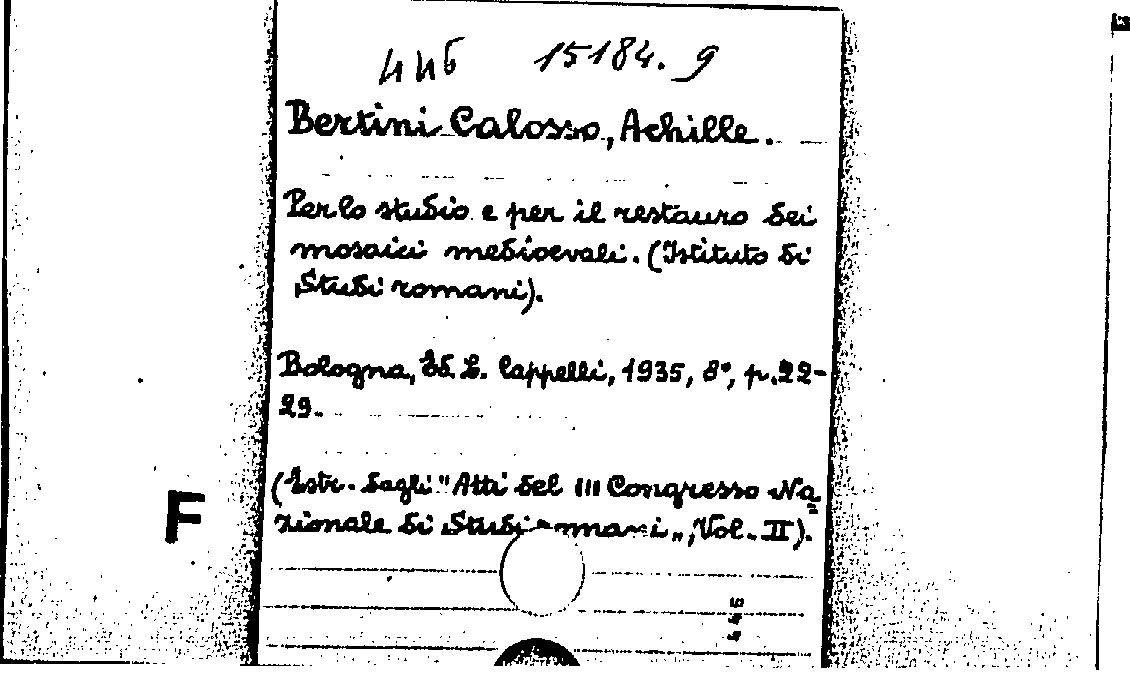 446 15184. 9
Bertini Calosso, Achille.
Per lo studio e per il restauro dei
mosaici medioevali. (Istituto di
Studi romani).
Bologna, Ed. L. Cappelli, 1935, 8°, p. 22-
29.
(Estr. dagli "Atti del III Congresso Na
zionale di Studi romani", Vol. II).
F